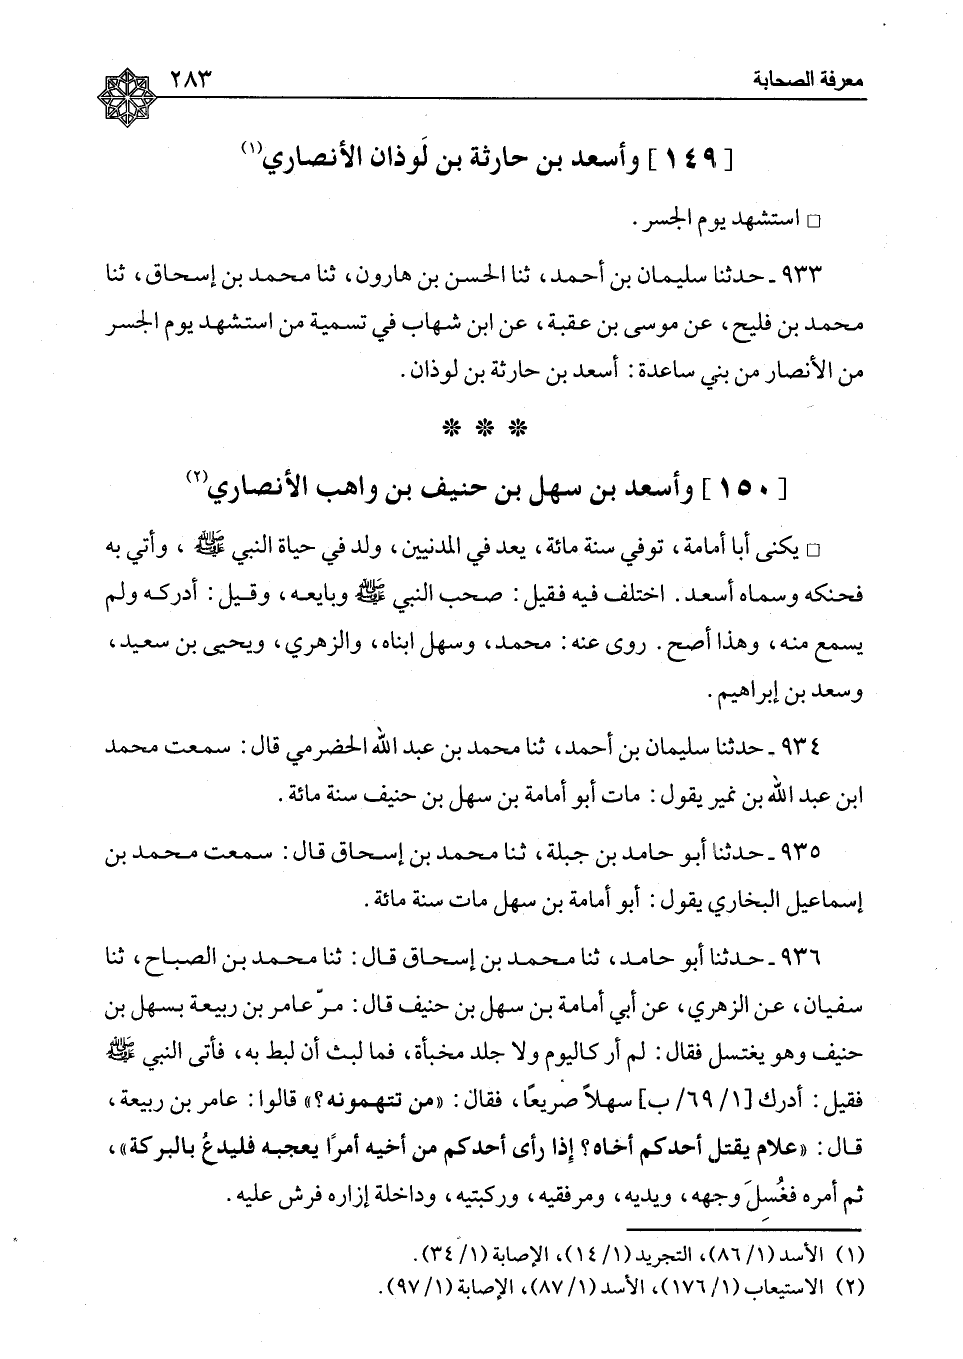 معرفة الصحابة ٢٨٣
[١٤٩] وأسعد بن حارثة بن لَوذان الأنصاري(١)
□ استشهد يوم الجسر.
٩٣٣ ـ حدثنا سليمان بن أحمد، ثنا الحسن بن هارون، ثنا محمد بن إسحاق، ثنا
محمد بن فليح، عن موسى بن عقبة، عن ابن شهاب في تسمية من استشهد يوم الجسر
من الأنصار من بني ساعدة: أسعد بن حارثة بن لوذان.
[١٥٠] وأسعد بن سهل بن حنيف بن واهب الأنصاري(٢)
□ يكنى أبا أمامة، توفي سنة مائة، يعد في المدنيين، ولد في حياة النبي ﷺ، وأتي به
فحنكه وسماه أسعد. اختلف فيه فقيل: صحب النبي ﷺ وبايعه، وقيل: أدركه ولم
يسمع منه، وهذا أصح. روى عنه: محمد، وسهل ابناه، والزهري، ويحيى بن سعيد،
وسعد بن إبراهيم.
٩٣٤ ـ حدثنا سليمان بن أحمد، ثنا محمد بن عبد الله الحضرمي قال: سمعت محمد
ابن عبد الله بن نمير يقول: مات أبو أمامة بن سهل بن حنيف سنة مائة.
٩٣٥ ـ حدثنا أبو حامد بن جبلة، ثنا محمد بن إسحاق قال: سمعت محمد بن
إسماعيل البخاري يقول: أبو أمامة بن سهل مات سنة مائة.
٩٣٦ ـ حدثنا أبو حامد، ثنا محمد بن إسحاق قال: ثنا محمد بن الصباح، ثنا
سفيان، عن الزهري، عن أبي أمامة بن سهل بن حنيف قال: مرّ عامر بن ربيعة بسهل بن
حنيف وهو يغتسل فقال: لم أر كاليوم ولا جلد مخبأة، فما لبث أن لبط به، فأتى النبي ﷺ
فقيل: أدرك [١/ ٦٩/ ب] سهلاً صريعًا، فقال: «من تتهمونه؟» قالوا: عامر بن ربيعة،
قال: «علام يقتل أحدكم أخاه؟ إذا رأى أحدكم من أخيه أمرًا يعجبه فليدعُ بالبركة»،
ثم أمره فغُسِلَ وجهه، ويديه، ومرفقيه، وركبتيه، وداخلة إزاره فرش عليه.
(١) الأسد (١/ ٨٦)، التجريد (١/ ١٤)، الإصابة (١/ ٣٤).
(٢) الاستيعاب (١/ ١٧٦)، الأسد (١/ ٨٧)، الإصابة (١/ ٩٧).